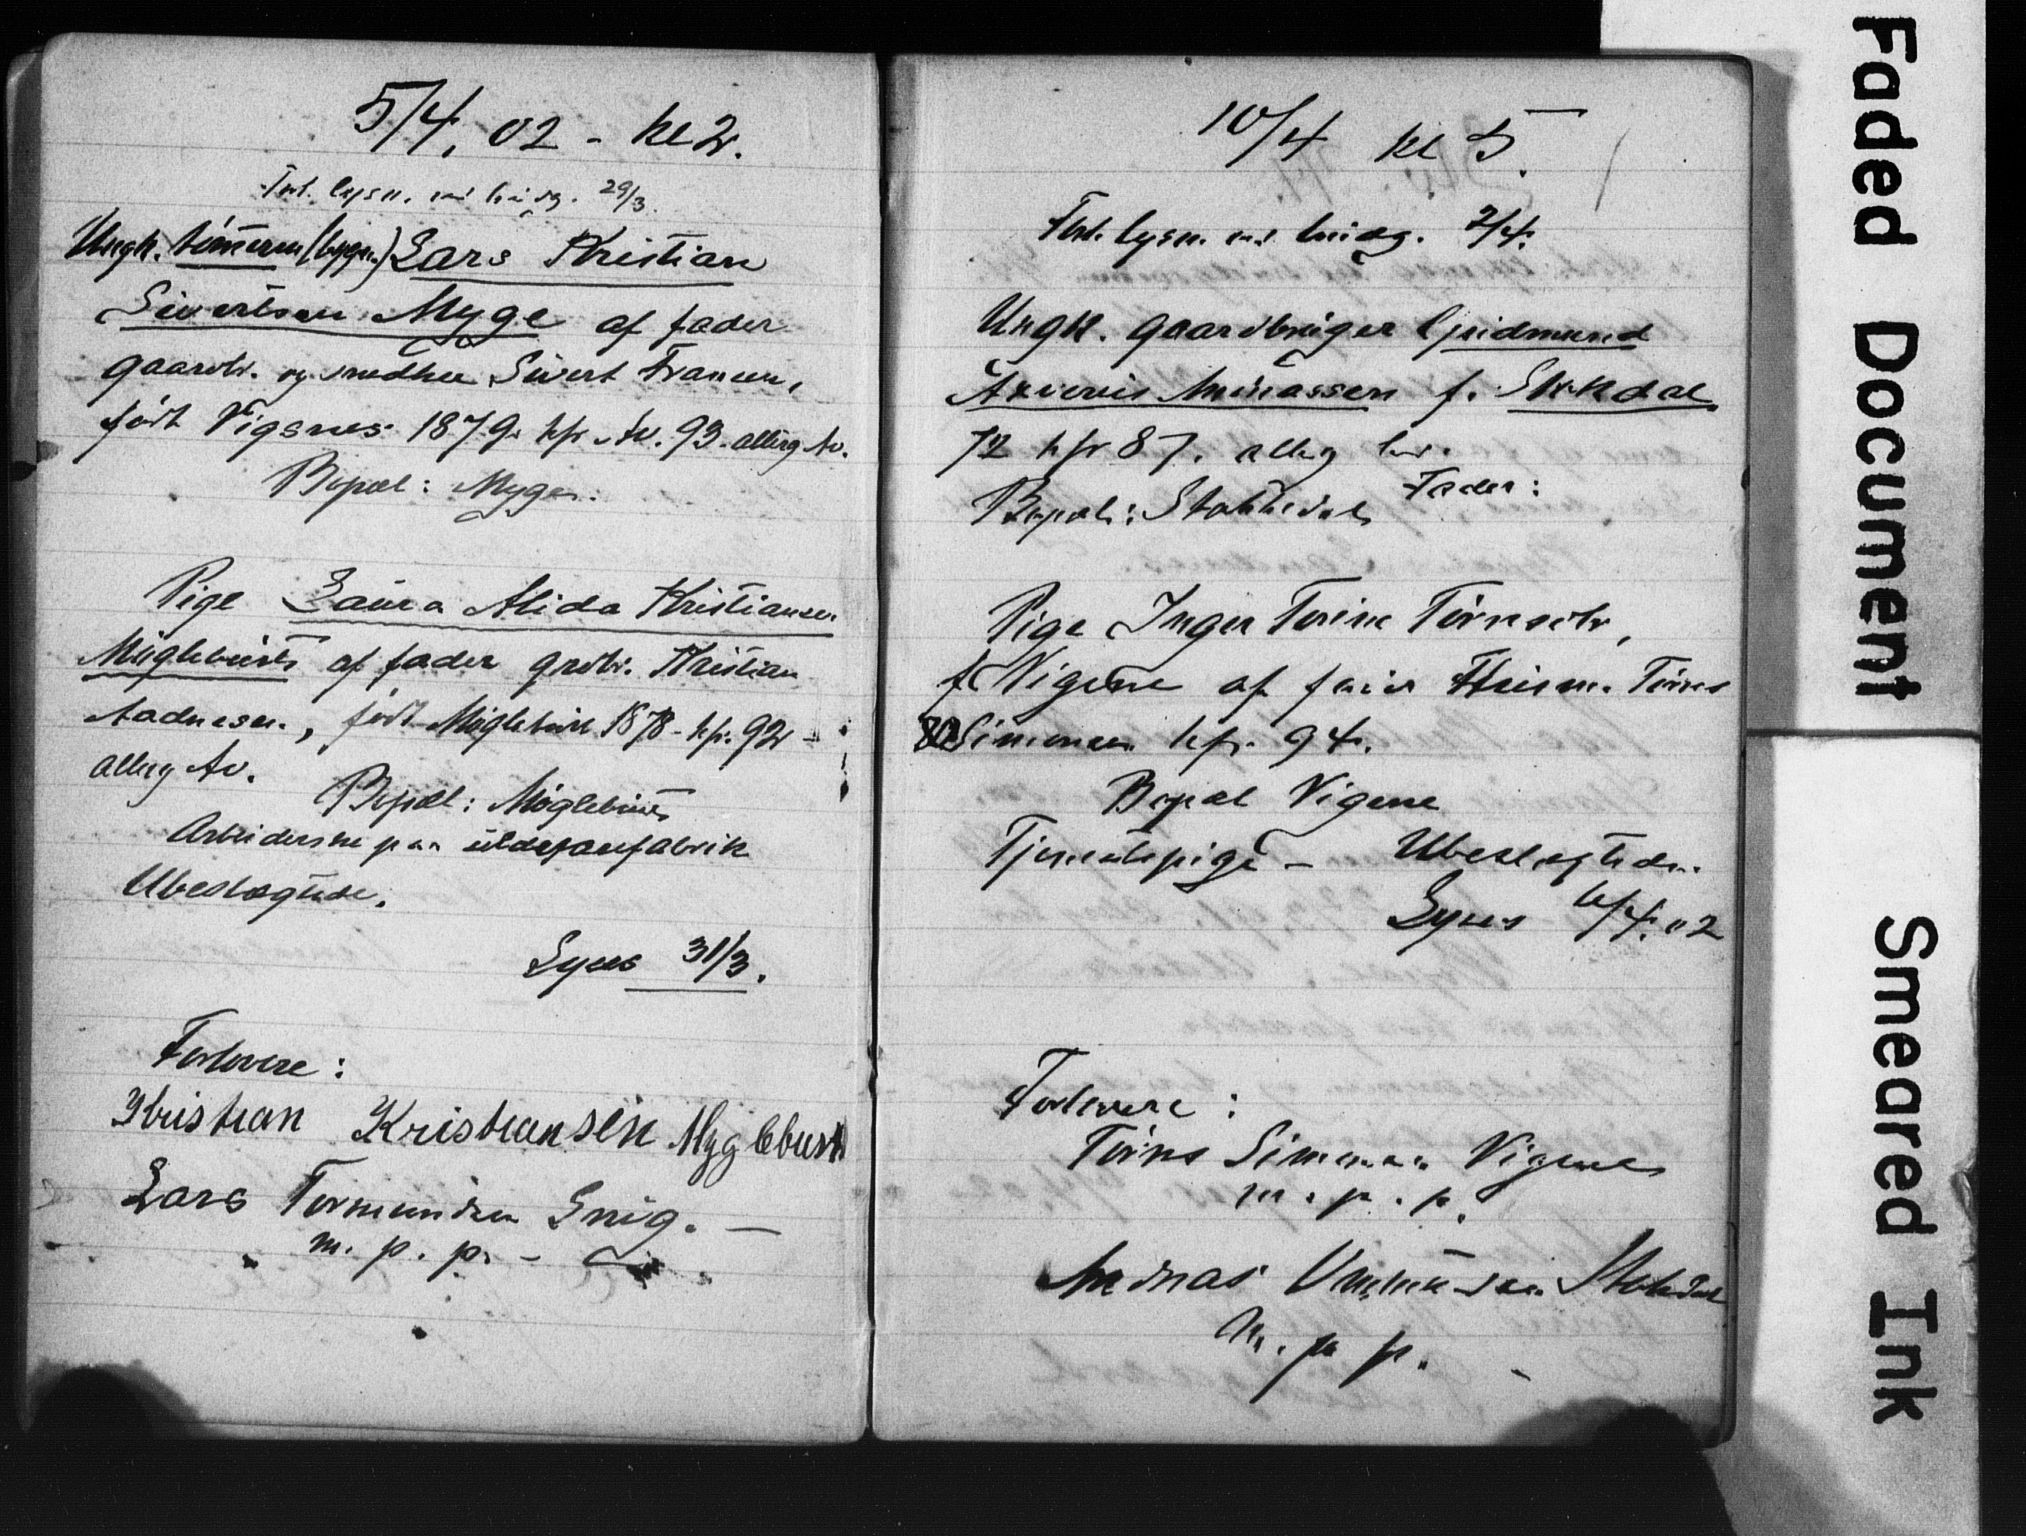 5/4. 02 - kl 2.
Forl. lysn. ved brudg. 29/3.
Ungk. tømmerm (bygn.) Lars Kristian
Sivertsen Myge af fader
gaardbr. og snedker Sivert Fransen,
født Vigsnes 1879. kfr. Av. 93. alterg Av.
Bopæl: Myge.
Pige Laura Alida Kristiansen
Møglebust af fader grdbr. Kristian
Aadnesen., født Møglebust 1878 - kfr. 92 -
alterg Av.
Bopæl: Møglebust
Arbeiderske paa uldvarefabrik
Ubeslægtede.
Lyses 31/3.
Forlovere:
Kristian Kristiansen Myglebust
Lars Tormundsen Gnig. —
m. p. p. -
10/4 kl 5.
Forl. lysn. ved brudg. 2/4.
Ungk. gaardbruger Gudmund
Andreassen f. Stokdal
72 kfr 87. alterg her.
Bopæl: Stokkedal Fader:
Pige Inger Torine Tørnsdtr,
f Vigene af fader Tørnes
Simonsen kfr. 94.
Bopæl Vigene
Tjenestepige - Ubeslægtede.
Lyses 6/4. 02
Forlovere:
Tørns Simonsen Vigene
m. p. p.
Andreas Stokdal
m. p p. -
Faded Document
Smeared Ink